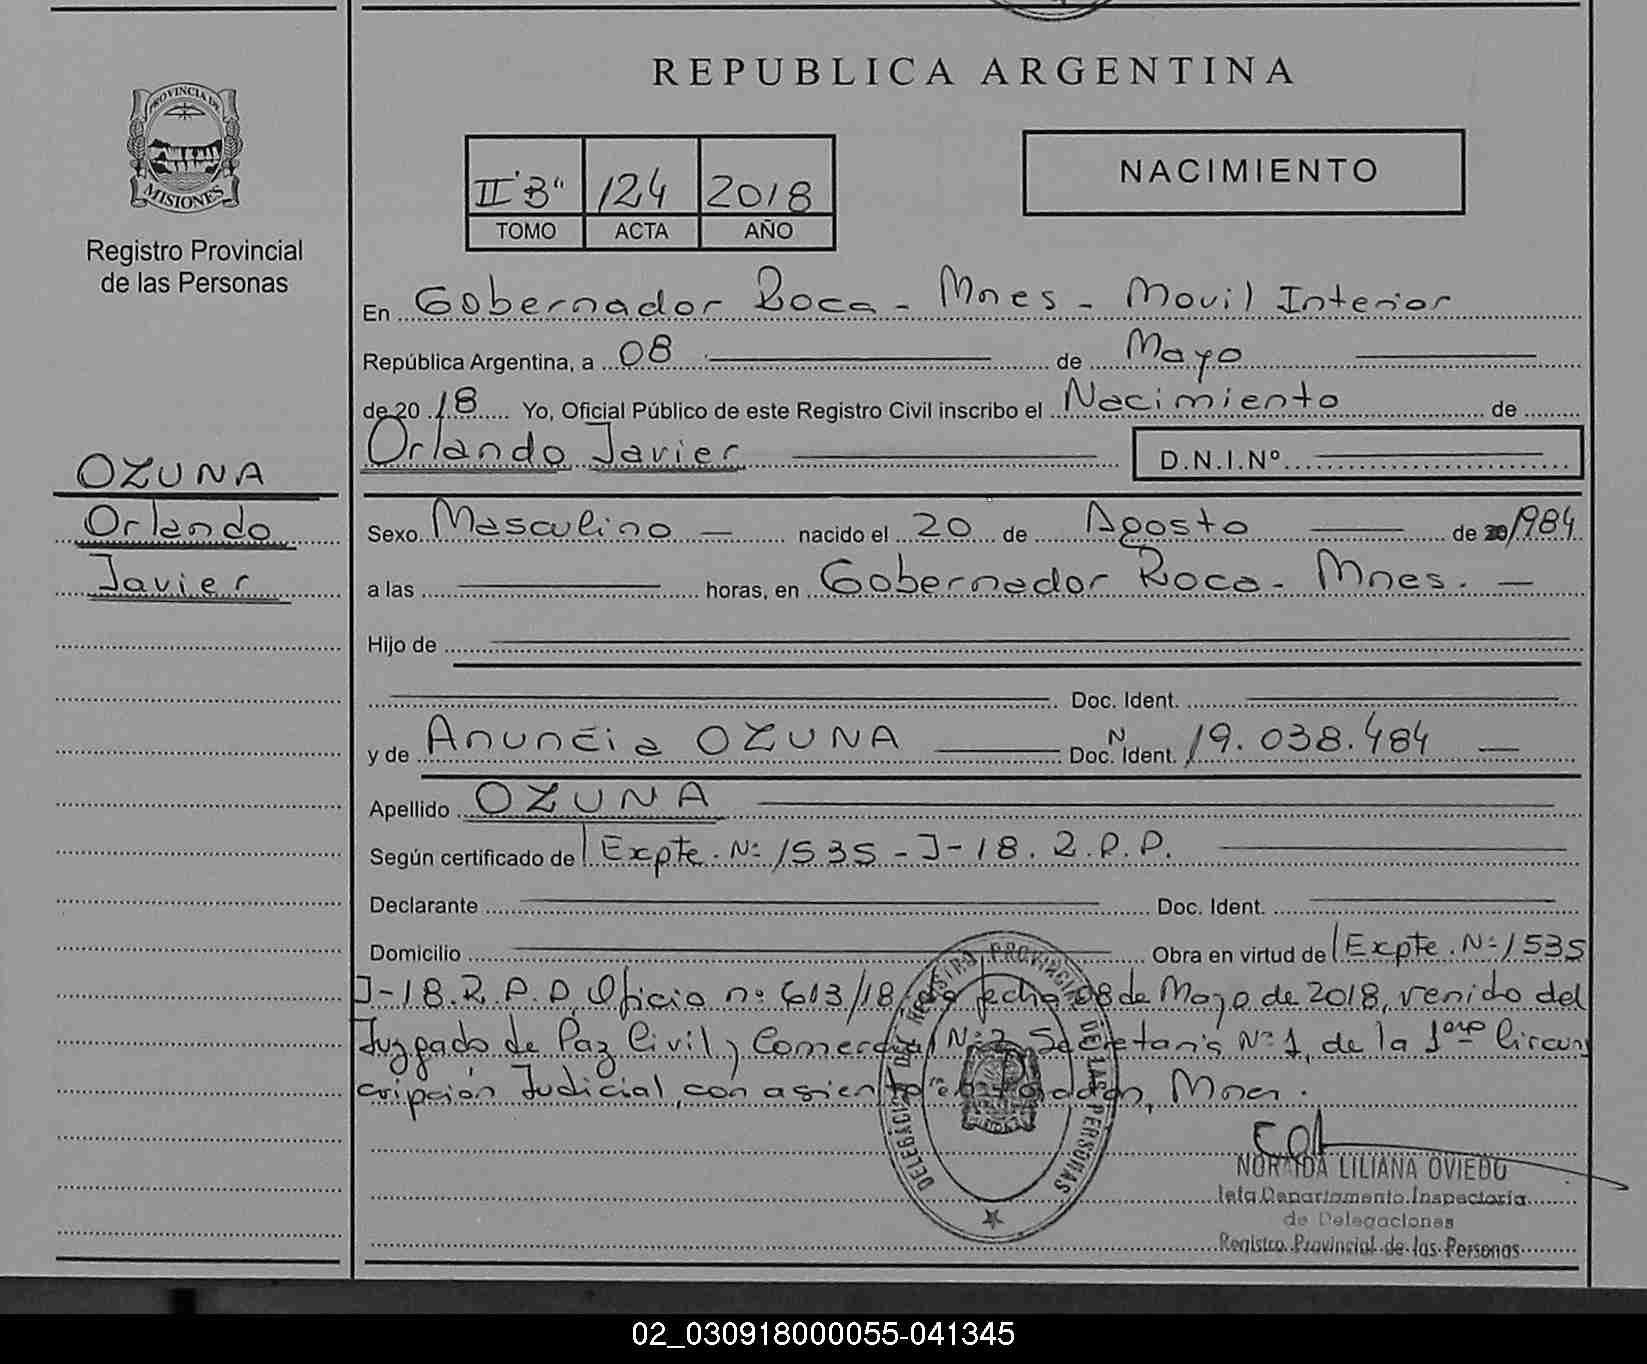 REPUBLICA ARGENTINA
PROVINCIA DE MISIONES
Registro Provincial
de las Personas
II "B" 124 2018
TOMO ACTA AÑO
NACIMIENTO
En Gobernador Roca - Mnes - Movil Interior
República Argentina, a 08 de Mayo
de 20 18 Yo, Oficial Público de este Registro Civil inscribo el Nacimiento de
Orlando Javier D.N.I.Nº
OZUNA
Orlando
Javier
Sexo Masculino nacido el 20 de Agosto de 1984
a las horas, en Gobernador Roca - Mnes.
Hijo de
Doc. Ident.
y de Anuncia OZUNA Doc. N Ident. 19.038.484
Apellido OZUNA
Según certificado de Expte. Nº 1535 - J - 18. R.P.P.
Declarante Doc. Ident.
Domicilio Obra en virtud de Expte. Nº 1535
J-18.R.P.P. Oficio nº 613/18 de fecha 08 de Mayo de 2018, venido del
Juzgado de Paz Civil y Comercial Nº 2 Secretaria Nº 1, de la 1era Circuns
cripción Judicial, con asiento en Posadas, Mnes.
DELEGACION DEL REGISTRO PROVINCIAL DE LAS PERSONAS
NORAIDA LILIANA OVIEDO
Jefa Departamento Inspectoría
de Delegaciones
Registro Provincial de las Personas
02_030918000055-041345